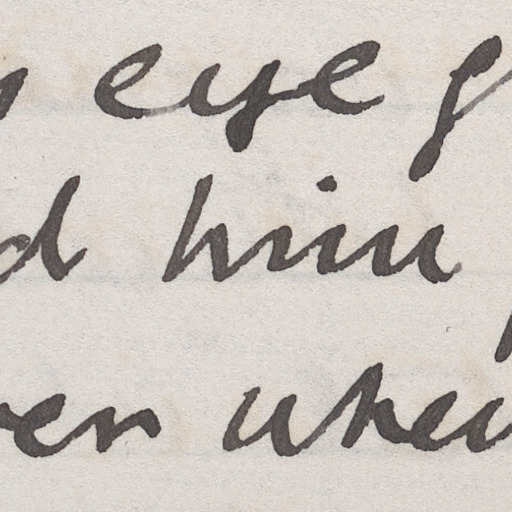 eye
d him
en when